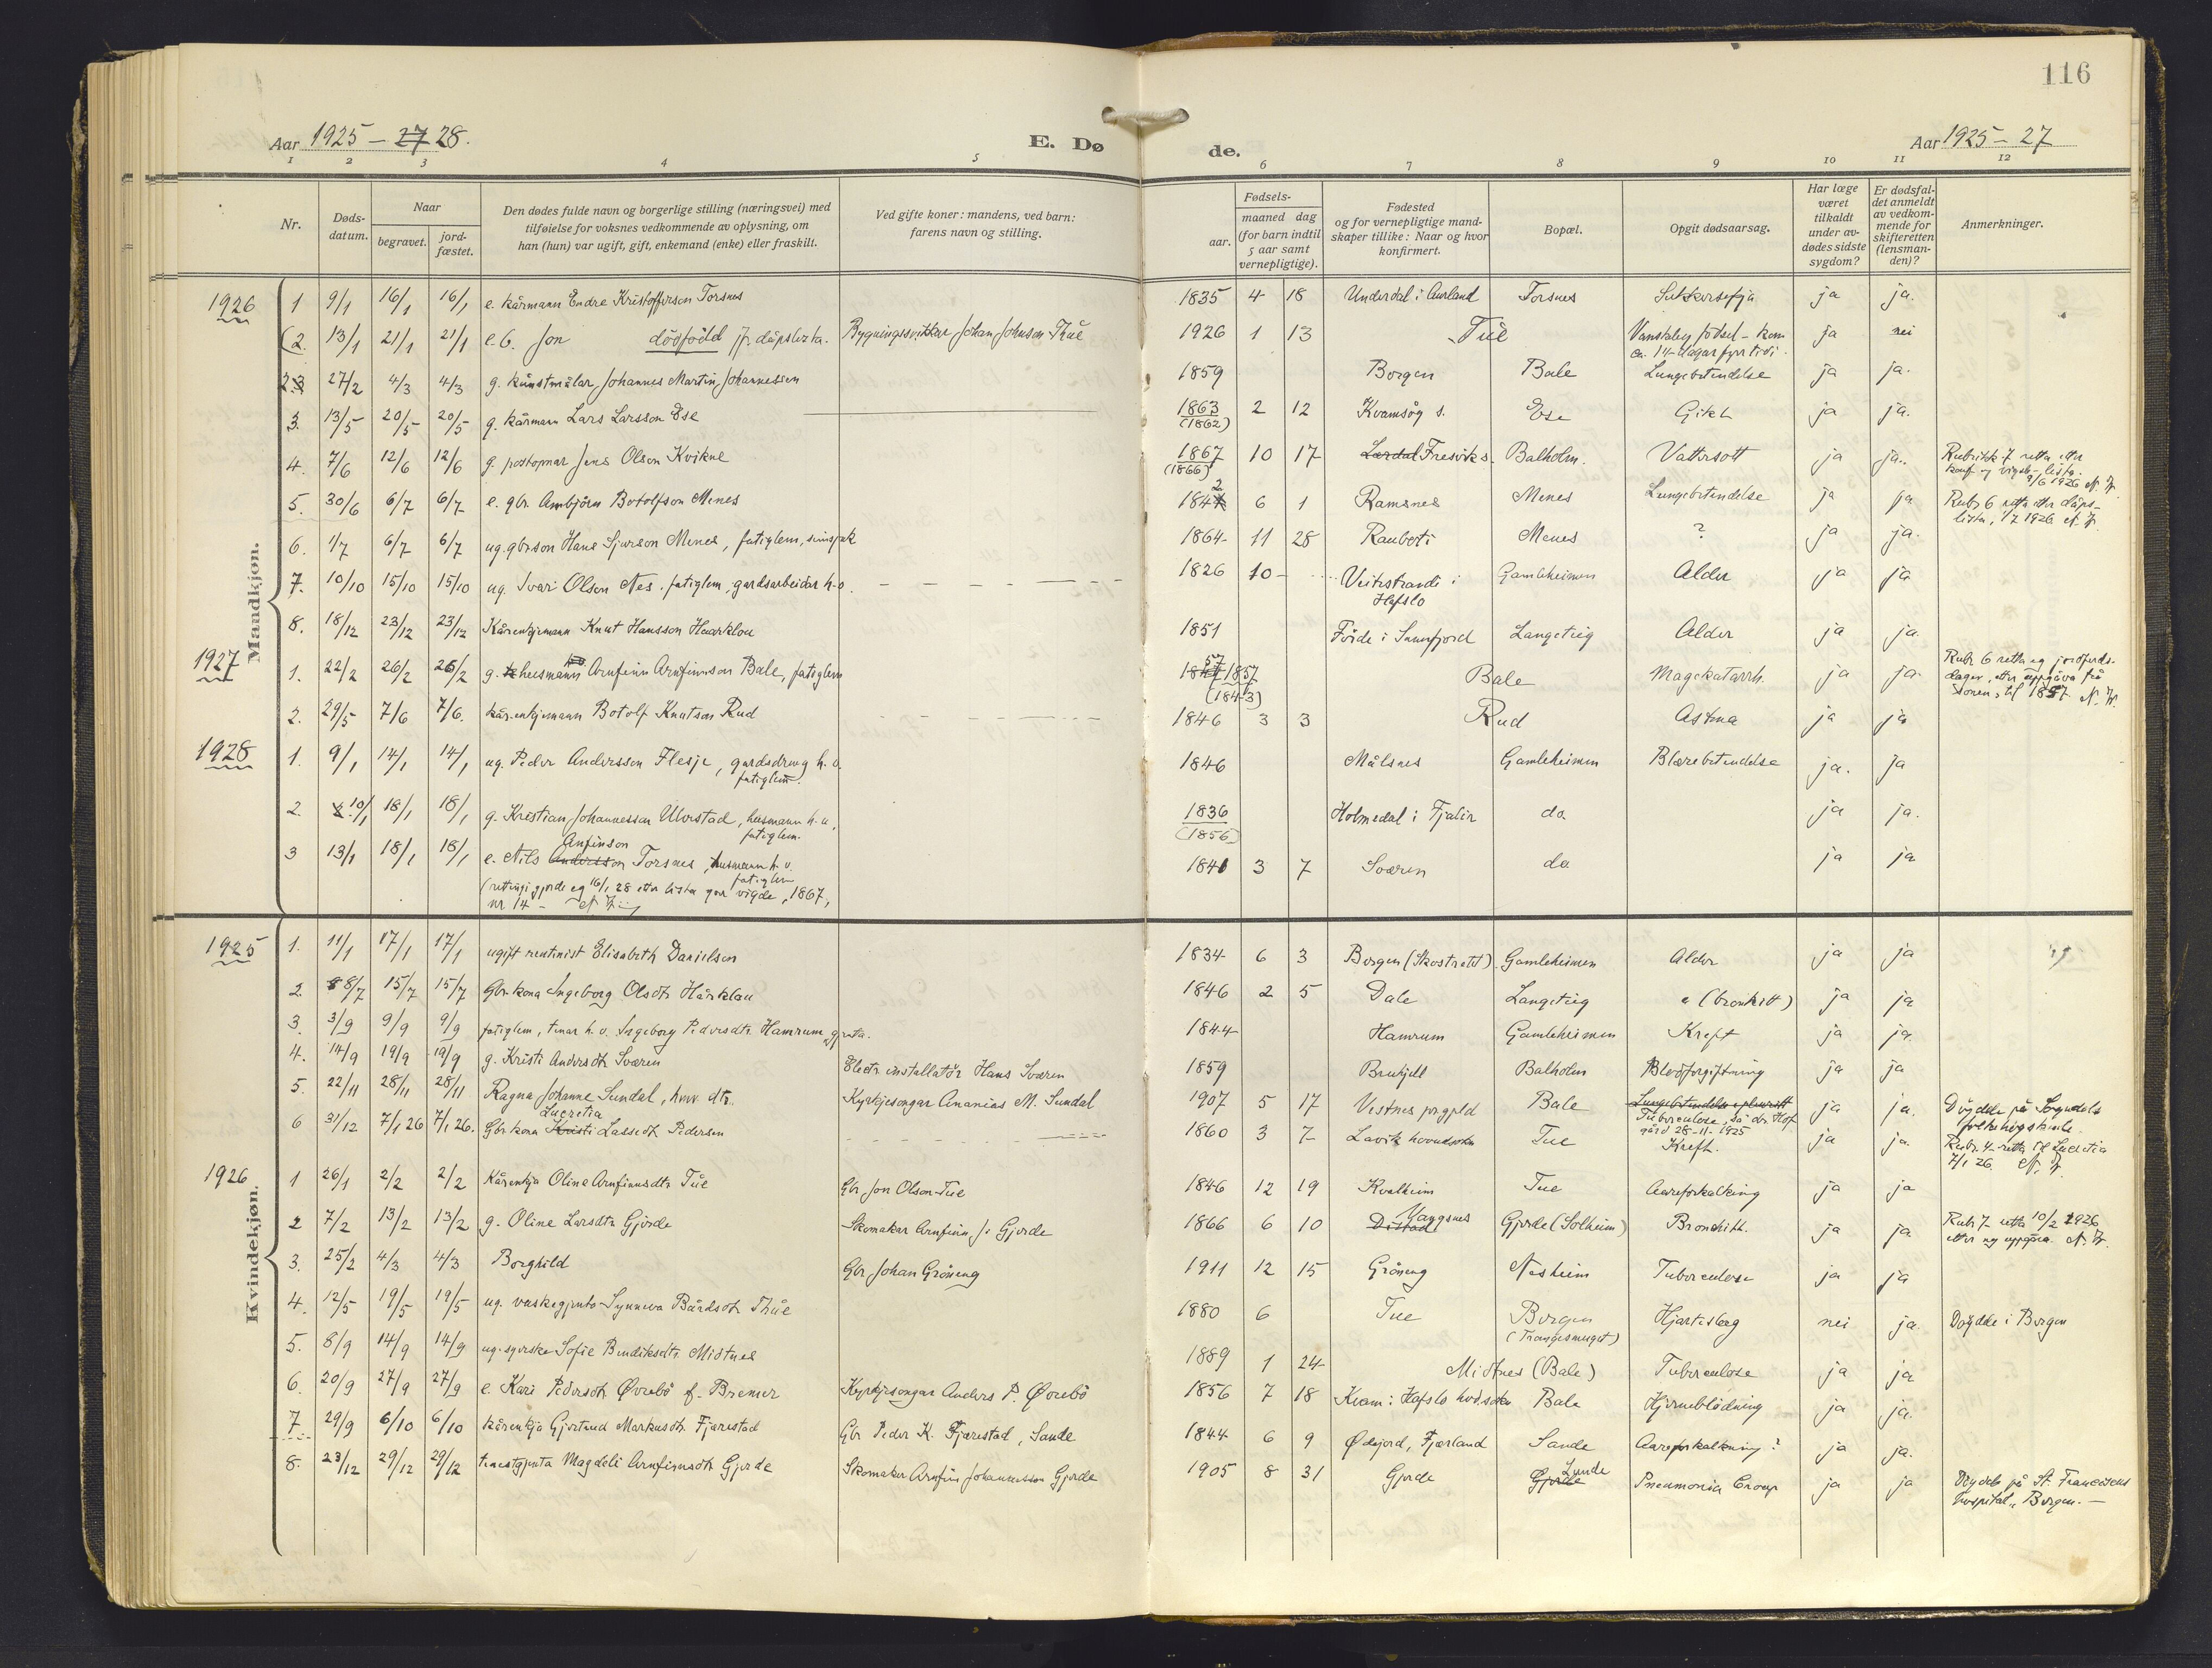 116
Aar 1925 – 27 28.
E. Dø
de.
Aar 1925 – 27
1 2 3 4 5 6 7 8 9 10 11 12
Nr.
Døds-
datum.
Naar
begravet.
jord-
fæstet.
Den dødes fulde navn og borgerlige stilling (næringsvei) med
tilføielse for voksnes vedkommende av oplysning, om
han (hun) var ugift, gift, enkemand (enke) eller fraskilt.
Ved gifte koner: mandens, ved barn:
farens navn og stilling.
Fødsels-
aar.
maaned dag
(for barn indtil
5 aar samt
vernepligtige).
Fødested
og for vernepligtige mand-
skaper tillike: Naar og hvor
konfirmert.
Bopæl.
Opgit dødsaarsag.
Har læge
været
tilkaldt
under av-
dødes sidste
sygdom?
Er dødsfal-
det anmeldt
av vedkom-
mende for
skifteretten
(lensman-
den)?
Anmerkninger.
Mandkjøn.
1926 1 9/1 16/1 16/1 e. kårmann Endre Kristoffersen Torsnes 1835 4 18 Underdal i Aurland Torsnes Sukkersykja ja ja.
(2. 13/1 21/1 21/1 e.b. Jon dödfödd jfr. dåpslista. Bygningssnikkar Johan Johnson Thue 1926 1 13 Tue Vanskeleg födsel – kom ja nei
ca. 14 dagar fyrr tidi.
2 3 27/2 4/3 4/3 g. kunstmålar Johannes Martin Johannessen 1859 Bergen Bale Lungebetendelse ja ja.
3. 13/5 20/5 20/5 g. kårmann Lars Larsson Ese 1863 2 12 Kvamsøy s. Ese Gikt ja ja.
(1862)
4. 7/6 12/6 12/6 g. postopnar Jens Olson Kvikne 1867 10 17 Lærdal Fresvik s. Balholm. Vattersott ja ja. Rubrikk 7 retta etter
(1866) konf. og vigsle-lista.
9/6 1926
5. 30/6 6/7 6/7 e. gbr. Ambjörn Botolfson Menes 1842 6 1 Ramsnes Menes Lungebetendelse ja ja Rubr 6 retta etter dåps-
lista, 1/7 1926
6. 1/7 6/7 6/7 ug. gbrson Hans Sjurson Menes, fatiglem, sinnsjuk 1864 11 28 Rauboti Menes ? ja ja.
7. 10/10 15/10 15/10 ug. Ivar Olson Nes, fatiglem, gardsarbeidar h.v. 1826 10 – Veitestrandi i Gamleheimen Alder ja ja
Hafslo
8. 18/12 23/12 23/12 Kårenkjemann Knut Hansson Haarklou 1851 Förde i Sunnfjord Langeteig Alder ja ja.
1927 1. 22/2 26/2 26/2 g. husmann Arnfinn Arnfinnson Bale, fatiglem 1857 Bale Magekatarrh. ja ja. Rubr 6 retta og jordferds-
(1843) dagen, etter uppgåva frå
sonen, til 1857.
2. 29/5 7/6 7/6. kårenkjemann Botolf Knutson Rud 1846 3 3 Rud Astma ja ja
1928 1. 9/1 14/1 14/1 ug. Peder Andersson Flesje, gardsdreng h.v. 1846 Målsnes Gamleheimen Blærebetendelse ja. ja
fatiglem.
2. 10/1 18/1 18/1 g. Kristian Johannesson Ulvestad, husmann h.v., 1836 Holmedal i Fjaler do. ja ja.
fatiglem. (1856)
Anfinson
3 13/1 18/1 18/1 e. Nils Andersson Torsnes, husmann h.v. 1840 3 7 Sværen do ja ja
fatiglem
(rettingi gjorde eg 16/1 28 etter lista yver vigde, 1867,
nr 14 –
Kvindekjøn.
1925 1. 11/1 17/1 17/1 ugift rentenist Elisabeth Danielsen 1834 6 3 Bergen Gamleheimen Alder ja ja
2. 8 8/7 15/7 15/7 Gbr. kona Ingeborg Olsdtr Hårklau 1846 2 5 Dale Langeteig (bronkitt) ja ja
3. 3/9 9/9 9/9 fatiglem, tenar h.v. Ingeborg Pedersdtr. Hamrum, ug gjenta. 1844 Hamrum Gamleheimen Kreft ja ja.
4. 14/9 19/9 19/9 g. Kristi Andersdtr Sværen Electr. installatör Hans Sværen 1859 Brekjell Balholm Blodforgiftning ja ja
5. 22/11 28/11 28/11 Ragna Johanne Sundal, hmv. dtr. Kyrkjesongar Ananias M. Sundal 1907 5 17 Vestnes prgjeld Bale Lungebetendelse e pleuritt ja ja. Döydde på Sogndals
Tuberculose, så dr. Hof- folkehögskule.
Lucretia gård 28-11-1925
6 31/12 7/1 26 7/1 26. Gbr kona Kristi Lassedtr Pedersen 1860 3 7 Lavik hovudsokn Tue Kreft. ja ja. Rubr. 4 retta til Lucretia
7/1 26.
1926 1 26/1 2/2 2/2 Kårenkja Oline Arnfinnsdtr Tue Gbr Jon Olson Tue 1846 12 19 Kvalheim Tue Aareforkalking ja ja
2 7/2 13/2 13/2 g. Oline Larsdtr Gjerde Skomakar Arnfinn J. Gjerde 1866 6 10 Distad Vangsnes Gjerde (Solheim) Bronchitt. ja ja Rubr 7 retta 10/2 1926
etter ny uppgåva.
3. 25/2 4/3 4/3 Borghild Gbr Johan Gröneng 1911 12 15 Gröneng Nesheim Tuberculose ja ja
4. 12/5 19/5 19/5 ug. vaskegjenta Synneva Bårdsdtr Thue 1880 6 Tue Bergen Hjartesleg nei ja. Döydde i Bergen
(Trangesmuget)
5. 8/9 14/9 14/9 ug. syerske Sofie Bendiksdtr. Midtnes 1889 1 24 Midtnes (Bale) Tuberculose ja ja
6. 20/9 27/9 27/9 e. Kari Pedersdtr Øvrebö f. Bremer Kyrkjesongar Anders P. Øvrebö 1856 7 18 Kvam i Hafslo hvd.sokn Bale Hjerneblödning ja ja.
7 29/9 6/10 6/10 kårenkja Gjertrud Markusdtr. Fjærestad Gbr Peder K. Fjærestad, Sande 1844 6 9 Ødejord, Fjærland Sande Aareforkalkning? ja ja.
8. 23/12 29/12 29/12 tenestgjenta Magdeli Arnfinnsdtr Gjerde Skomaker Arnfin Johannesson Gjerde 1905 8 31 Gjerde Gjerde Lunde Pneumonia Croup ja ja Döydde på St. Franciscus
hospital, Bergen. –